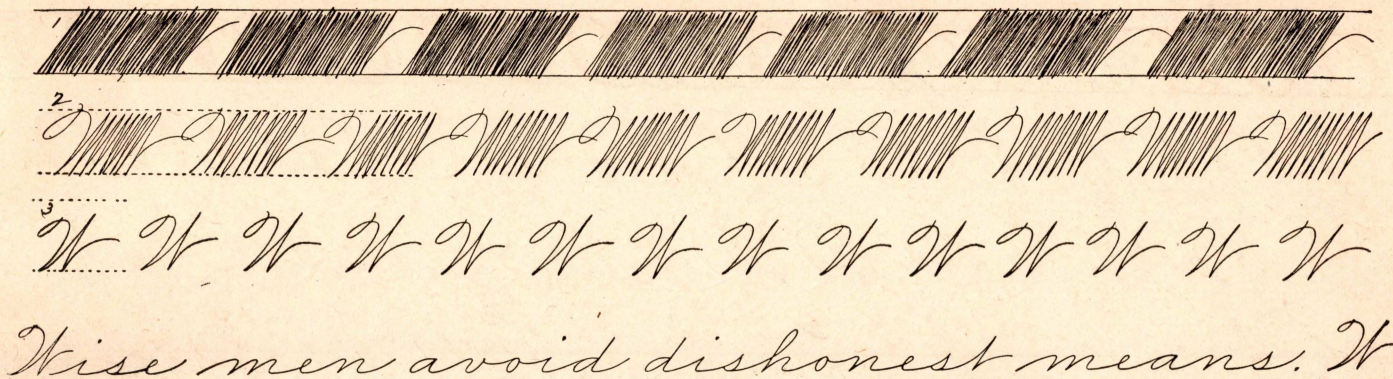 1
2
3
W W W W W W W W W W W W W W
Wise men avoid dishonest means. W